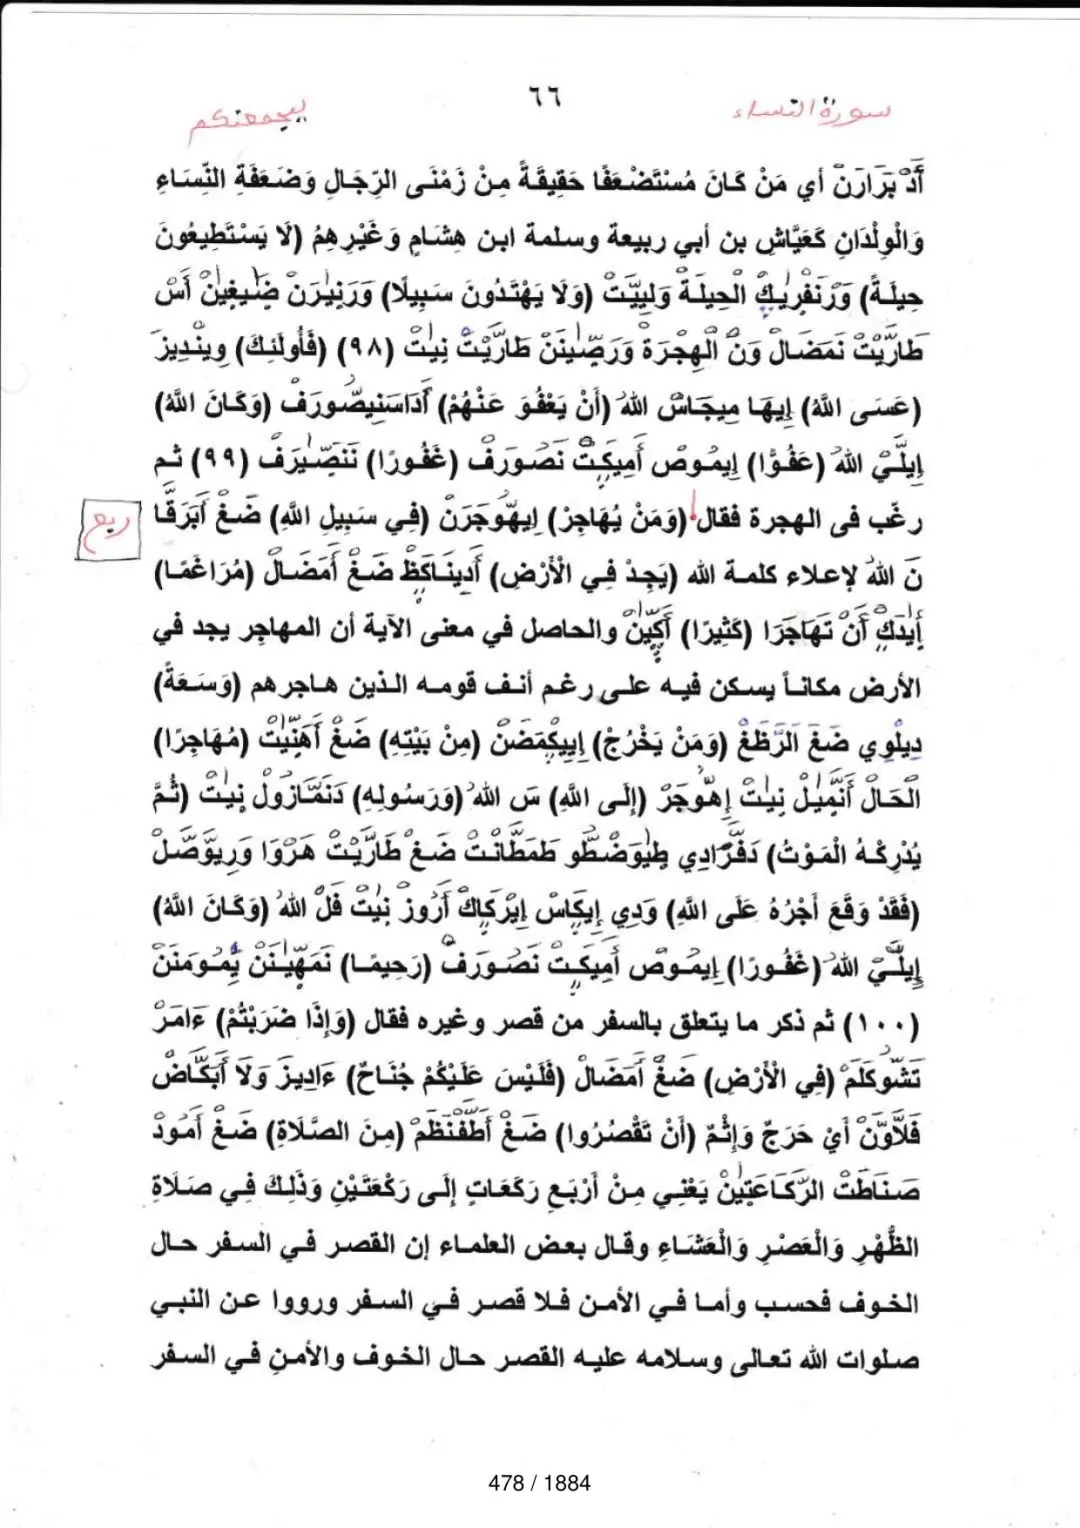 سورة النساء
٦٦
ليجمعنكم
أَدْ بَرَارَنْ أي مَنْ كَانَ مُسْتَضْعَفًا حَقِيقَةً مِنْ زَمْنَى الرِّجَالِ وَضَعَفَةِ النِّسَاءِ
وَالْوِلْدَانِ كَعَيَّاشِ بن أبي ربيعة وسلمة ابن هِشَامٍ وَغَيْرِهِمُ (لَا يَسْتَطِيعُونَ
حِيلَةً) وَرَنَفْرِيْكْ الْحِيلَةْ وَلِييَّتْ (وَلَا يَهْتَدُونَ سَبِيلًا) وَرَنِيْرَنْ ضِيغِينْ أَسْ
طَارَيْتْ نَمَضَالْ وَنْ الْهِجْرَةْ وَرَصِيْنَنْ طَارَيْتْ نِيْتْ (٩٨) (فَأُولَئِكَ) وِينْدِيزْ
(عَسَى اللَّهُ) إِيهَا مِيجَاسْ اللهْ (أَنْ يَعْفُوَ عَنْهُمْ) أَدَاسَنِيصُورَفْ (وَكَانَ اللَّهُ)
إِيلَيْ اللهْ (عَفُوًّا) إِيمُوصْ أَمِيكِتْ نَصُورَفْ (غَفُورًا) نَنَصِّيرَفْ (٩٩) ثم
رغّب فى الهجرة فقال (وَمَنْ يُهَاجِرْ) إِيهُوجَرَنْ (فِي سَبِيلِ اللَّهِ) ضَغْ أَبَرَقَّا
ربع
نَ اللهْ لإعلاء كلمة الله (يَجِدْ فِي الْأَرْضِ) أَدِينَاكَظْ ضَغْ أَمَضَالْ (مُرَاغَمًا)
أَيْدَكْ أَنْ تَهَاجَرَا (كَثِيرًا) أَكِيْنْ والحاصل في معنى الآية أن المهاجر يجد في
الأرض مكاناً يسكن فيه على رغم أنف قومه الذين هاجرهم (وَسَعَةً)
دِيلْوِي ضَغَ الرَّظَغْ (وَمَنْ يَخْرُجْ) إِيِيكْمَضَنْ (مِنْ بَيْتِهِ) ضَغْ أَهَنِّيْتْ (مُهَاجِرًا)
الْحَالْ أَنْمِيلْ نِيْتْ إِهُّوجَرْ (إِلَى اللَّهِ) سَ اللهْ (وَرَسُولِهِ) دَنَمَّازُولْ نِيْتْ (ثُمَّ
يُدْرِكْهُ الْمَوْتُ) دَفَّرَادِي طِيْوَضْطُو طَمَطَّانْتْ ضَغْ طَارَيْتْ هَرْوَا وَرِيوَّصَلْ
(فَقَدْ وَقَعَ أَجْرُهُ عَلَى اللَّهِ) وَدِي إِيكَاسْ إِيْرَكَاكْ أَرُوزْ نِيْتْ فَلْ اللهْ (وَكَانَ اللَّهُ)
إِيلَيْ اللهْ (غَفُورًا) إِيمُوصْ أَمِيكِتْ نَصُورَفْ (رَحِيمًا) نَمَهِّينَنْ يْمُومَنَنْ
(١٠٠) ثم ذكر ما يتعلق بالسفر من قصر وغيره فقال (وَإِذَا ضَرَبْتُمْ) ءَامَرْ
تَشُّوكَلَمْ (فِي الْأَرْضِ) ضَغْ أَمَضَالْ (فَلَيْسَ عَلَيْكُمْ جُنَاحٌ) ءَادِيزْ وَلَا أَبَكَّاضْ
فَلَّاوَنْ أَيْ حَرَجٌ وَإِثْمٌ (أَنْ تَقْصُرُوا) ضَغْ أَطَفْنَظَمْ (مِنَ الصَّلَاةِ) ضَغْ أَمُودْ
صَنَاطَتْ الرَّكَاعَتِيْنْ يَعْنِي مِنْ أَرْبَعِ رَكَعَاتٍ إِلَى رَكْعَتَيْنِ وَذَلِكَ فِي صَلَاةِ
الظُّهْرِ وَالْعَصْرِ وَالْعَشَاءِ وقال بعض العلماء إن القصر في السفر حال
الخوف فحسب وأما في الأمن فلا قصر في السفر ورووا عن النبي
صلوات الله تعالى وسلامه عليه القصر حال الخوف والأمنِ في السفر
478 / 1884